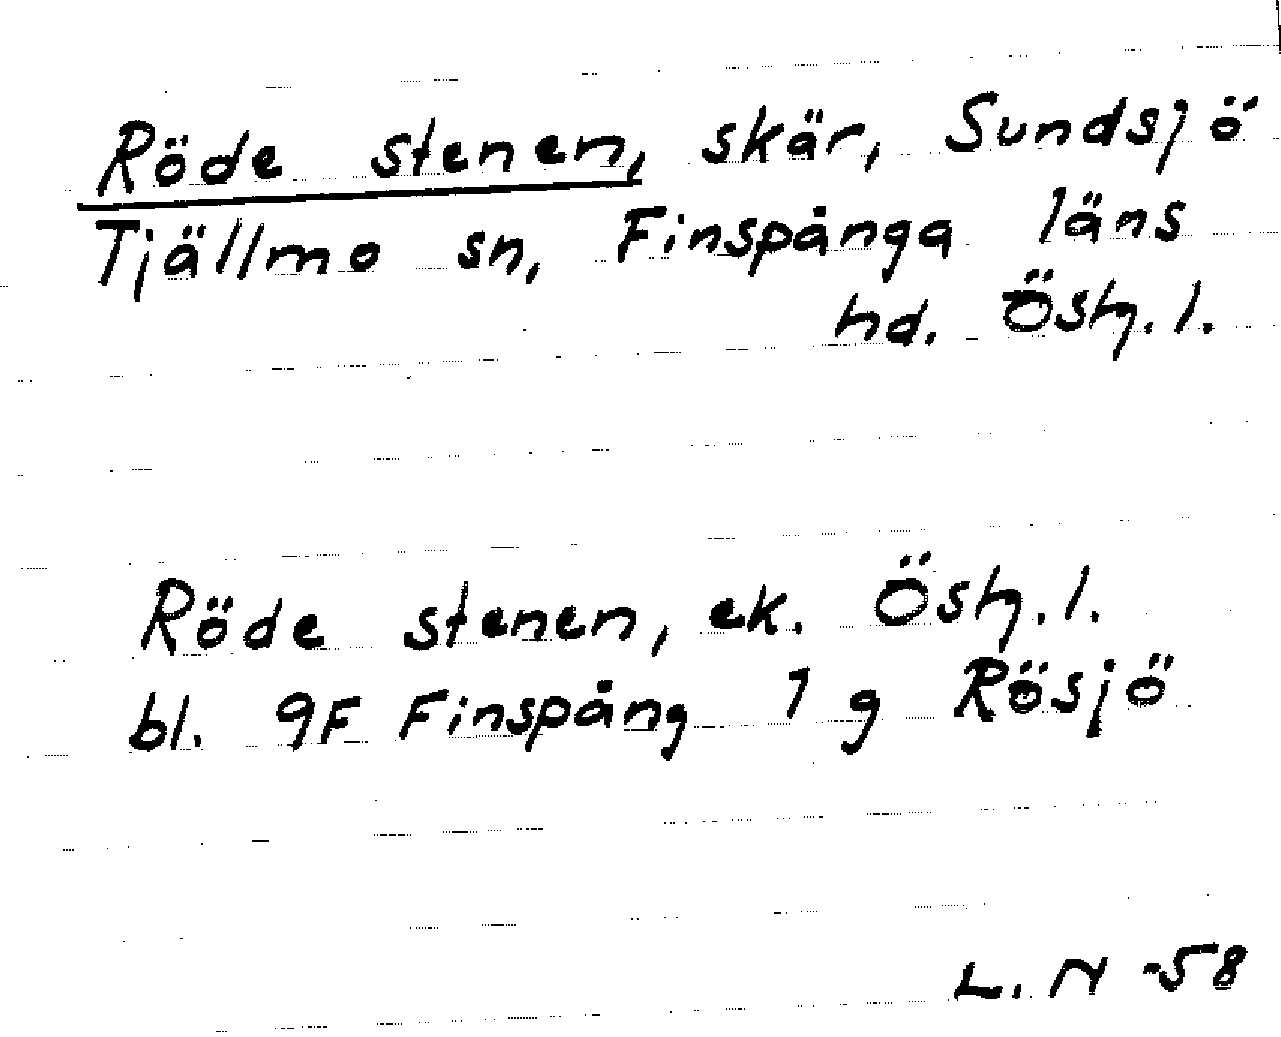 Röde stenen, skär, Sundsjö
Tjällmo sn, Finspånga läns
hd. Östg. l.
Röde stenen, ek. Östg. l.
bl. 9F Finspång 1 g Rösjö
L. N -58